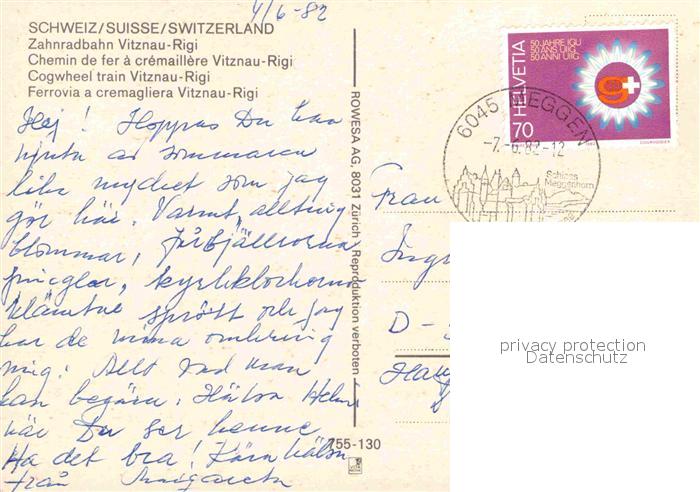 4/6-82
SCHWEIZ/SUISSE/SWITZERLAND
Zahnradbahn Vitznau-Rigi
Chemin de fer à crémaillère Vitznau-Rigi
Cogwheel train Vitznau-Rigi
Ferrovia a cremagliera Vitznau-Rigi
Hej! Hoppas Du kan
njuta av sommaren
lika mycket som jag
gör här. Varmt, allting
blommar,
pinglar, kyrkklockorna
klämtar sprött och jag
har de mina omkring
mig! Allt vad man
kan begära. Hälsa
när Du ser henne
Ha det bra! Kära hälsn
från Margareta
ROWESA AG, 8031 Zürich / Reproduktion verboten
755-130
HELVETIA
50 JAHRE IGU
50 ANS UIIG
50 ANNI UIIG
70
6045 MEGGEN
-7.-6.82-12
Schloss
Meggenhorn
Frau
D-
privacy protection
Datenschutz